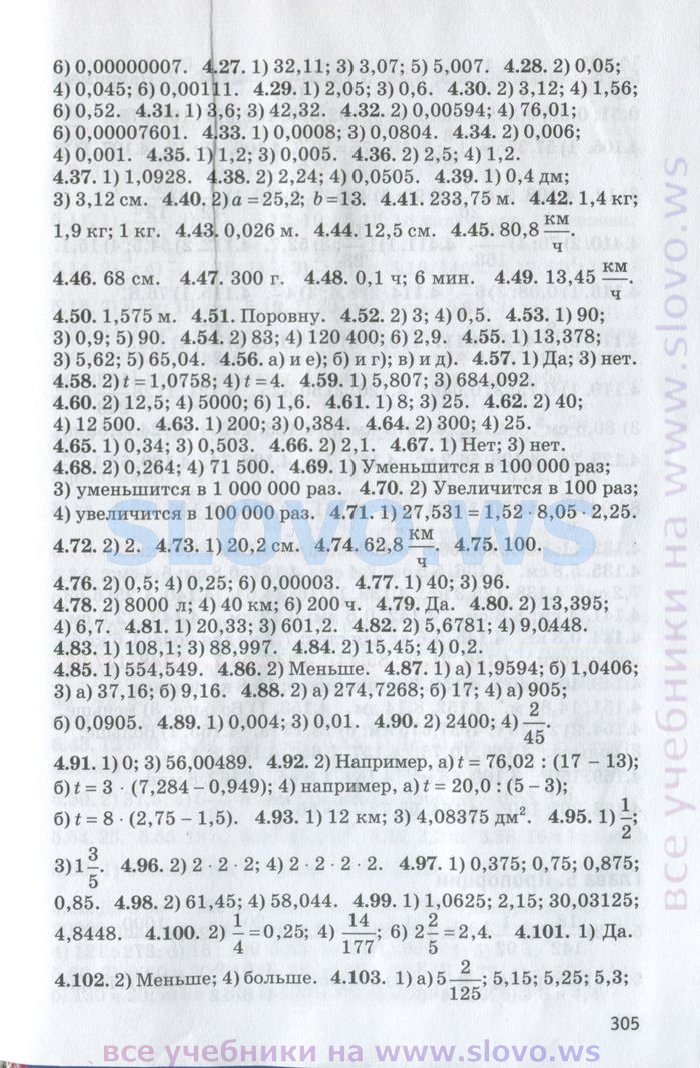 6) 0,00000007. 4.27. 1) 32,11; 3) 3,07; 5) 5,007. 4.28. 2) 0,05;
4) 0,045; 6) 0,00111. 4.29. 1) 2,05; 3) 0,6. 4.30. 2) 3,12; 4) 1,56;
6) 0,52. 4.31. 1) 3,6; 3) 42,32. 4.32. 2) 0,00594; 4) 76,01;
6) 0,00007601. 4.33. 1) 0,0008; 3) 0,0804. 4.34. 2) 0,006;
4) 0,001. 4.35. 1) 1,2; 3) 0,005. 4.36. 2) 2,5; 4) 1,2.
4.37. 1) 1,0928. 4.38. 2) 2,24; 4) 0,0505. 4.39. 1) 0,4 дм;
3) 3,12 см. 4.40. 2) a = 25,2; b = 13. 4.41. 233,75 м. 4.42. 1,4 кг;
1,9 кг; 1 кг. 4.43. 0,026 м. 4.44. 12,5 см. 4.45. 80,8 км/ч.
4.46. 68 см. 4.47. 300 г. 4.48. 0,1 ч; 6 мин. 4.49. 13,45 км/ч.
4.50. 1,575 м. 4.51. Поровну. 4.52. 2) 3; 4) 0,5. 4.53. 1) 90;
3) 0,9; 5) 90. 4.54. 2) 83; 4) 120 400; 6) 2,9. 4.55. 1) 13,378;
3) 5,62; 5) 65,04. 4.56. а) и е); б) и г); в) и д). 4.57. 1) Да; 3) нет.
4.58. 2) t = 1,0758; 4) t = 4. 4.59. 1) 5,807; 3) 684,092.
4.60. 2) 12,5; 4) 5000; 6) 1,6. 4.61. 1) 8; 3) 25. 4.62. 2) 40;
4) 12 500. 4.63. 1) 200; 3) 0,384. 4.64. 2) 300; 4) 25.
4.65. 1) 0,34; 3) 0,503. 4.66. 2) 2,1. 4.67. 1) Нет; 3) нет.
4.68. 2) 0,264; 4) 71 500. 4.69. 1) Уменьшится в 100 000 раз;
3) уменьшится в 1 000 000 раз. 4.70. 2) Увеличится в 100 раз;
4) увеличится в 100 000 раз. 4.71. 1) 27,531 = 1,52 · 8,05 · 2,25.
4.72. 2) 2. 4.73. 1) 20,2 см. 4.74. 62,8 км/ч. 4.75. 100.
4.76. 2) 0,5; 4) 0,25; 6) 0,00003. 4.77. 1) 40; 3) 96.
4.78. 2) 8000 л; 4) 40 км; 6) 200 ч. 4.79. Да. 4.80. 2) 13,395;
4) 6,7. 4.81. 1) 20,33; 3) 601,2. 4.82. 2) 5,6781; 4) 9,0448.
4.83. 1) 108,1; 3) 88,997. 4.84. 2) 15,45; 4) 0,2.
4.85. 1) 554,549. 4.86. 2) Меньше. 4.87. 1) а) 1,9594; б) 1,0406;
3) а) 37,16; б) 9,16. 4.88. 2) а) 274,7268; б) 17; 4) а) 905;
б) 0,0905. 4.89. 1) 0,004; 3) 0,01. 4.90. 2) 2400; 4) 2/45.
4.91. 1) 0; 3) 56,00489. 4.92. 2) Например, а) t = 76,02 : (17 − 13);
б) t = 3 · (7,284 − 0,949); 4) например, а) t = 20,0 : (5 − 3);
б) t = 8 · (2,75 − 1,5). 4.93. 1) 12 км; 3) 4,08375 дм². 4.95. 1) 1/2;
3) 1 3/5. 4.96. 2) 2 · 2 · 2; 4) 2 · 2 · 2 · 2. 4.97. 1) 0,375; 0,75; 0,875;
0,85. 4.98. 2) 61,45; 4) 58,044. 4.99. 1) 1,0625; 2,15; 30,03125;
4,8448. 4.100. 2) 1/4 = 0,25; 4) 14/177; 6) 2 2/5 = 2,4. 4.101. 1) Да.
4.102. 2) Меньше; 4) больше. 4.103. 1) а) 5 2/125; 5,15; 5,25; 5,3;
305
SLOVO.WS
все учебники на www.slovo.ws
все учебники на www.slovo.ws